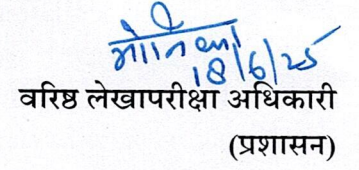 मोनिका
18/6/25
वरिष्ठ लेखापरीक्षा अधिकारी
(प्रशासन)